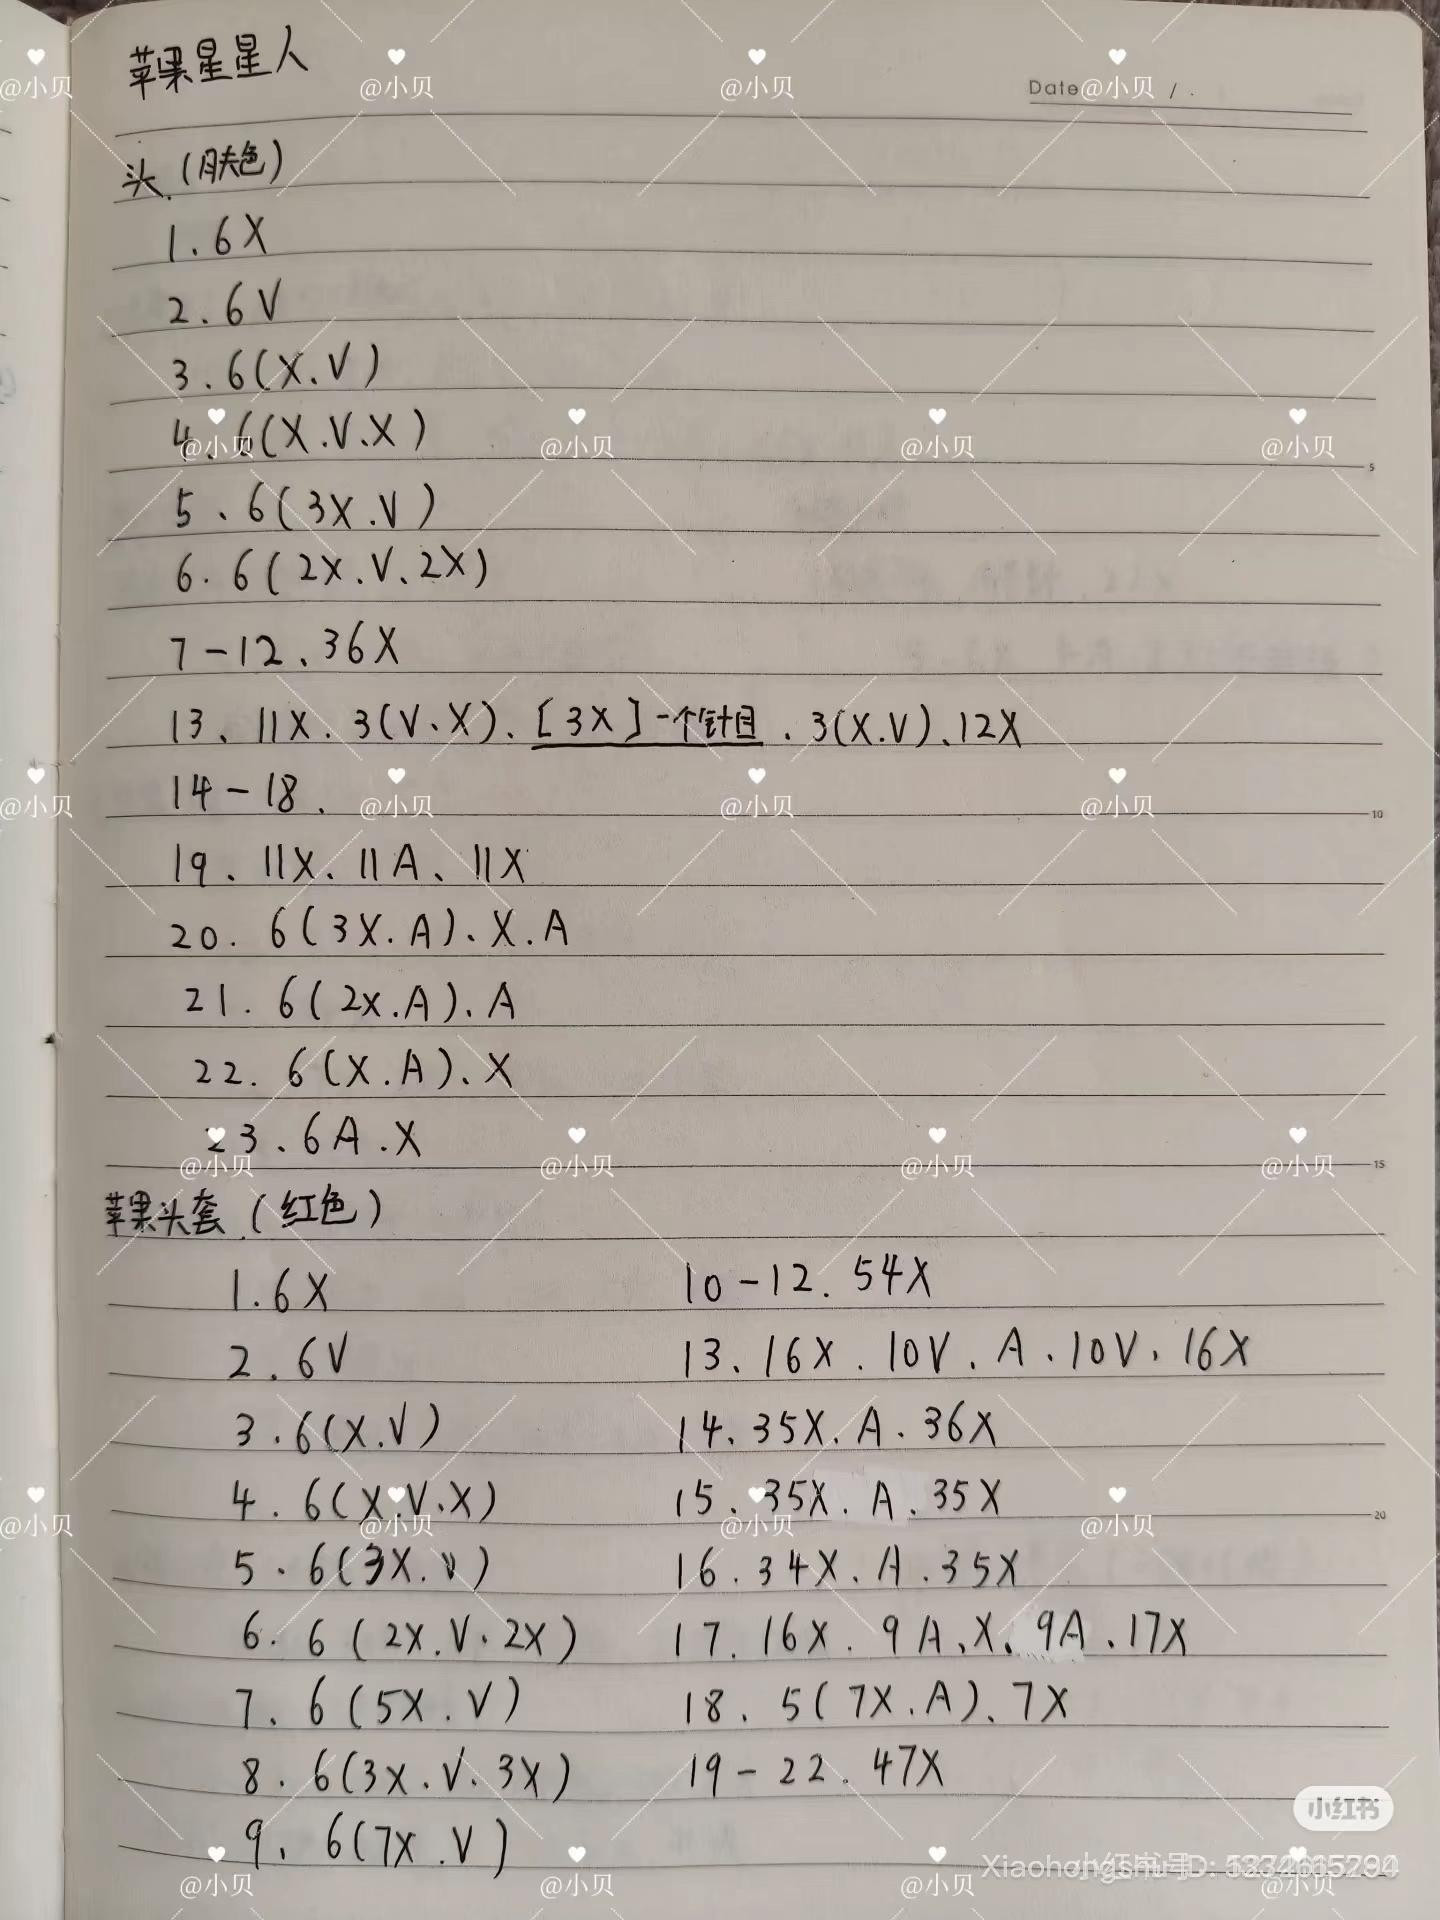 苹果星星人
Date / .
头(肤色)
1.6X
2.6V
3.6(X.V)
4.6(X.V.X)
5、6(3X.V)
6.6(2X.V、2X)
7-12、36X
13、11X.3(V.X)、[3X]一个针目.3(X.V)、12X
14-18.
19、11X、11A、11X
20.6(3X.A)、X.A
21.6(2X.A)、A
22.6(X.A)、X
23.6A.X
苹果头套(红色)
1.6X
2.6V
3.6(X.V)
4.6(X.V.X)
5.6(3X.V)
6.6(2X.V.2X)
7.6(5X.V)
8.6(3X.V.3X)
9、6(7X.V)
10-12.54X
13、16X.10V.A.10V.16X
14.35X.A.36X
15.35X.A.35X
16.34X.A.35X
17.16X.9A、X、9A.17X
18.5(7X.A)、7X
19-22.47X
5
10
15
20
@小贝
小红书